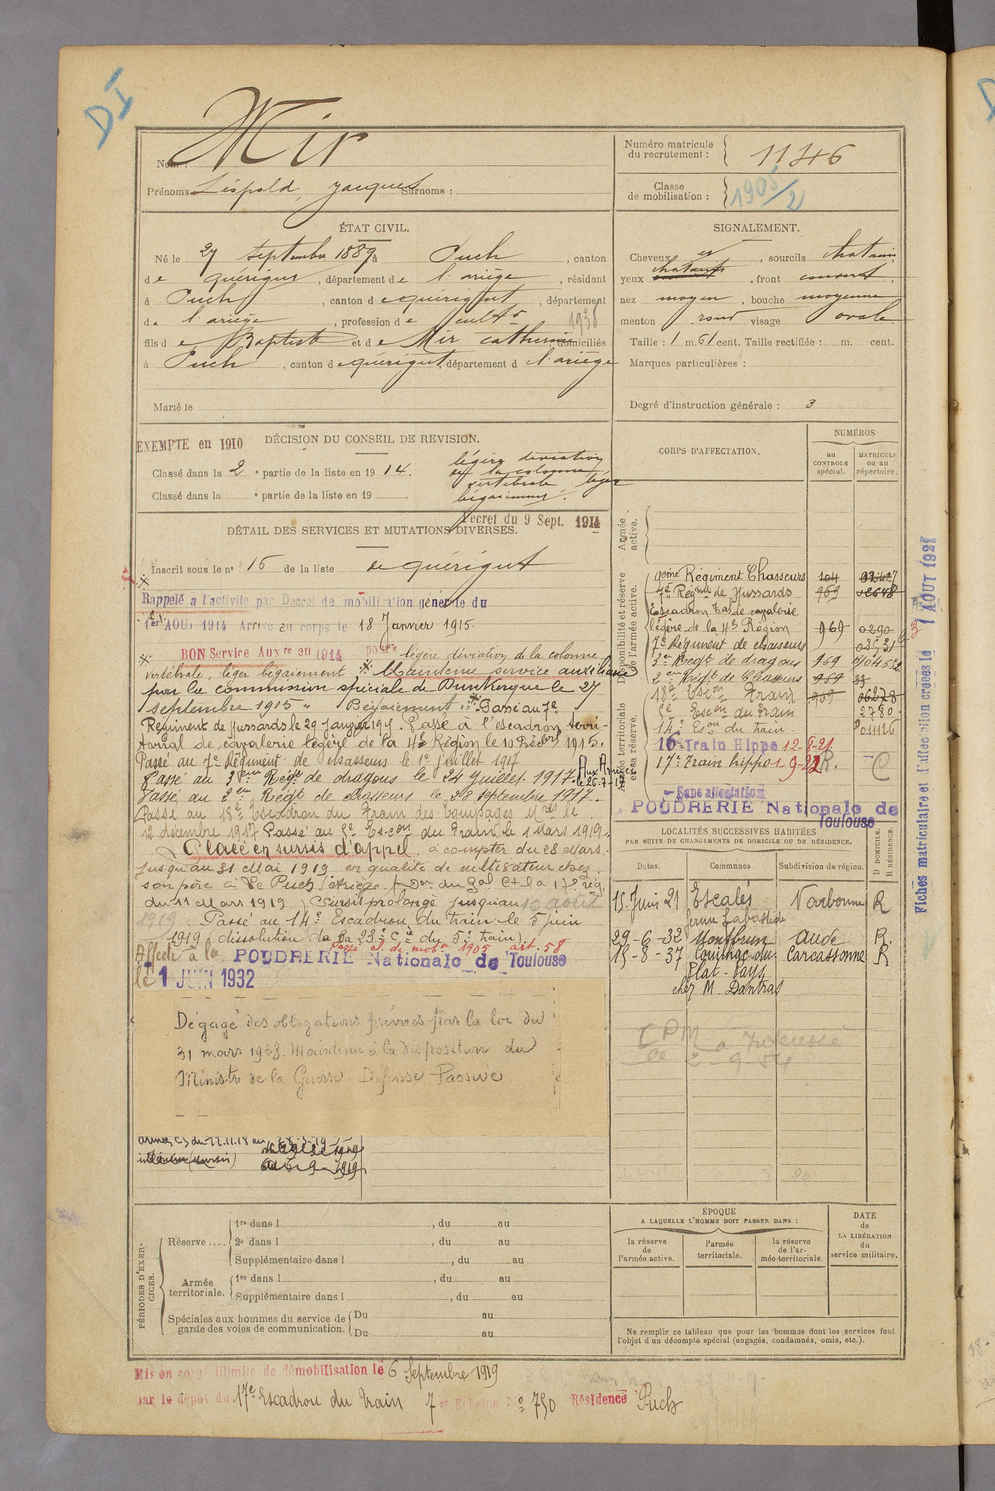 DI
Nom : Mir
Prénoms : Léopold, Jacques Surnoms :
Numéro matricule du recrutement : 1146
Classe de mobilisation : 1905/2
ÉTAT CIVIL.
Né le 27 septembre 1889 à Puch, canton
de quérigut, département de l'ariège, résidant
à Puch, canton de quérigut, département
de l'ariège, profession de cultr
1938
fils de Baptiste et de Mir catherine domiciliés
à Puch, canton de quérigut, département d l'ariège
Marié le
SIGNALEMENT.
Cheveux et, sourcils chatains
yeux chatains, front couvert,
nez moyen, bouche moyenne
menton rond visage ovale
Taille : 1 m. 61 cent. Taille rectifiée : m. cent.
Marques particulières :
Degré d'instruction générale : 3
EXEMPTE en 1910 DÉCISION DU CONSEIL DE REVISION.
Classé dans la 2e partie de la liste en 1914.
Classé dans la e partie de la liste en 19
légère déviation
de la colonne
vertébrale léger
bégaiement.
Decret du 9 Sept. 1914
DÉTAIL DES SERVICES ET MUTATIONS DIVERSES.
Inscrit sous le no 16 de la liste de quérigut
Rappelé à l'activité par Decret de mobilisation générale du
1er AOUT 1914 Arrivé au corps le 18 Janvier 1915.
BON Service Auxre en 1914 pour légère déviation de la colonne
vertébrale, léger bégaiement * Maintenu service auxiliaire
par la commission spéciale de Dunkerque le 27
septembre 1915 " Bégaiement " * Passé au 7e
Régiment de Hussards le 29 janvier 1915. Passé à l'escadron terri-
torial de cavalerie légère de la 4e Région le 10 Décbre 1915.
Passé au 7e Régiment de chasseurs le 1er juillet 1917
Passé au 3ème Régt de dragons le 24 juillet 1917. Aux Armées
le 26-7-17
Passé au 2ème Régt de chasseurs le 28 septembre 1917.
Passé au 18e Escadron du Train des Equipages Mres le
12 décembre 1917 Passé au 5e Escon du Train le 1 Mars 1919.
Placé en sursis d'appel à compter du 28 Mars
jusqu'au 31 Mai 1919 en qualité de cultivateur chez
son père à Le Puch, Ariège. (Don du Gal Ct la 17e rég.
du 11 Mars 1919) Sursis prolongé jusqu'au 10 août
1919. Passé au 14e Escadron du train le 5 juin
1919 (dissolution de la 23e Cie du 5e train)
Passé cl. de mobon 1905 art. 58
Affecté à la POUDRERIE Nationale de Toulouse
le 1 JUIN 1932
Dégagé des obligations prévues par la loi du
31 mars 1928. Maintenu à la disposition du
Ministre de la Guerre. Défense Passive
CORPS D'AFFECTATION.
NUMÉROS
au CONTROLE spécial.
MATRICULE ou au répertoire.
Armée active.
Disponibilité et réserve de l'armée active.
Armée territoriale et sa réserve.
9ème Régiment Chasseurs 104
7e Régint de Hussards 969
Escadron Tal de cavalerie
légère de la 4e Région 969 0290
7e Régiment de chasseurs
3me Régt de dragons 969
2me Régt de Chasseurs 969
18e Escon Train 969
5e Escon du Train 2780
14e Eson du train.
16e Train Hippo 12-8-21
17e Train hippo 1-9-22 R. C
Sans affectation
POUDRERIE Nationale de Toulouse
Fiches matriculaire et d'affectation créées le 1 AOUT 1921
LOCALITÉS SUCCESSIVES HABITÉES
PAR SUITE DE CHANGEMENTS DE DOMICILE OU DE RÉSIDENCE.
Dates. Communes Subdivision de région. D DOMICILE. R RÉSIDENCE.
15 Juin 21 Escales Narbonne R
29-6-32 Montbrun Aude R
15-8-37 Couilhac-du- Carcassonne R
Plat-Pays
chez M. Dantras
PÉRIODES D'EXERCICES.
Réserve.... 1re dans l , du au
2e dans l , du au
Supplémentaire dans l , du au
Armée territoriale. 1re dans l , du au
Supplémentaire dans l , du au
Spéciales aux hommes du service de garde des voies de communication. Du au
Du au
ÉPOQUE
A LAQUELLE L'HOMME DOIT PASSER DANS :
la réserve de l'armée active.
l'armée territoriale.
la réserve de l'armée territoriale.
DATE de LA LIBÉRATION du service militaire.
Ne remplir ce tableau que pour les hommes dont les services font
l'objet d'un décompte spécial (engagés, condamnés, omis, etc.).
Mis en congé illimité de démobilisation le 6 Septembre 1919
par le dépôt du 17e Escadron du Train 7e Echelon No 750 Résidence Puch